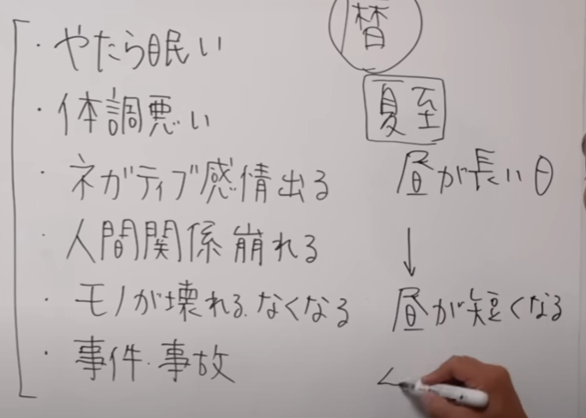 ・やたら眠い
・体調悪い
・ネガティブ感情出る
・人間関係崩れる
・モノが壊れる、なくなる
・事件・事故
暦
夏至
昼が長い日
↓
昼が短くなる